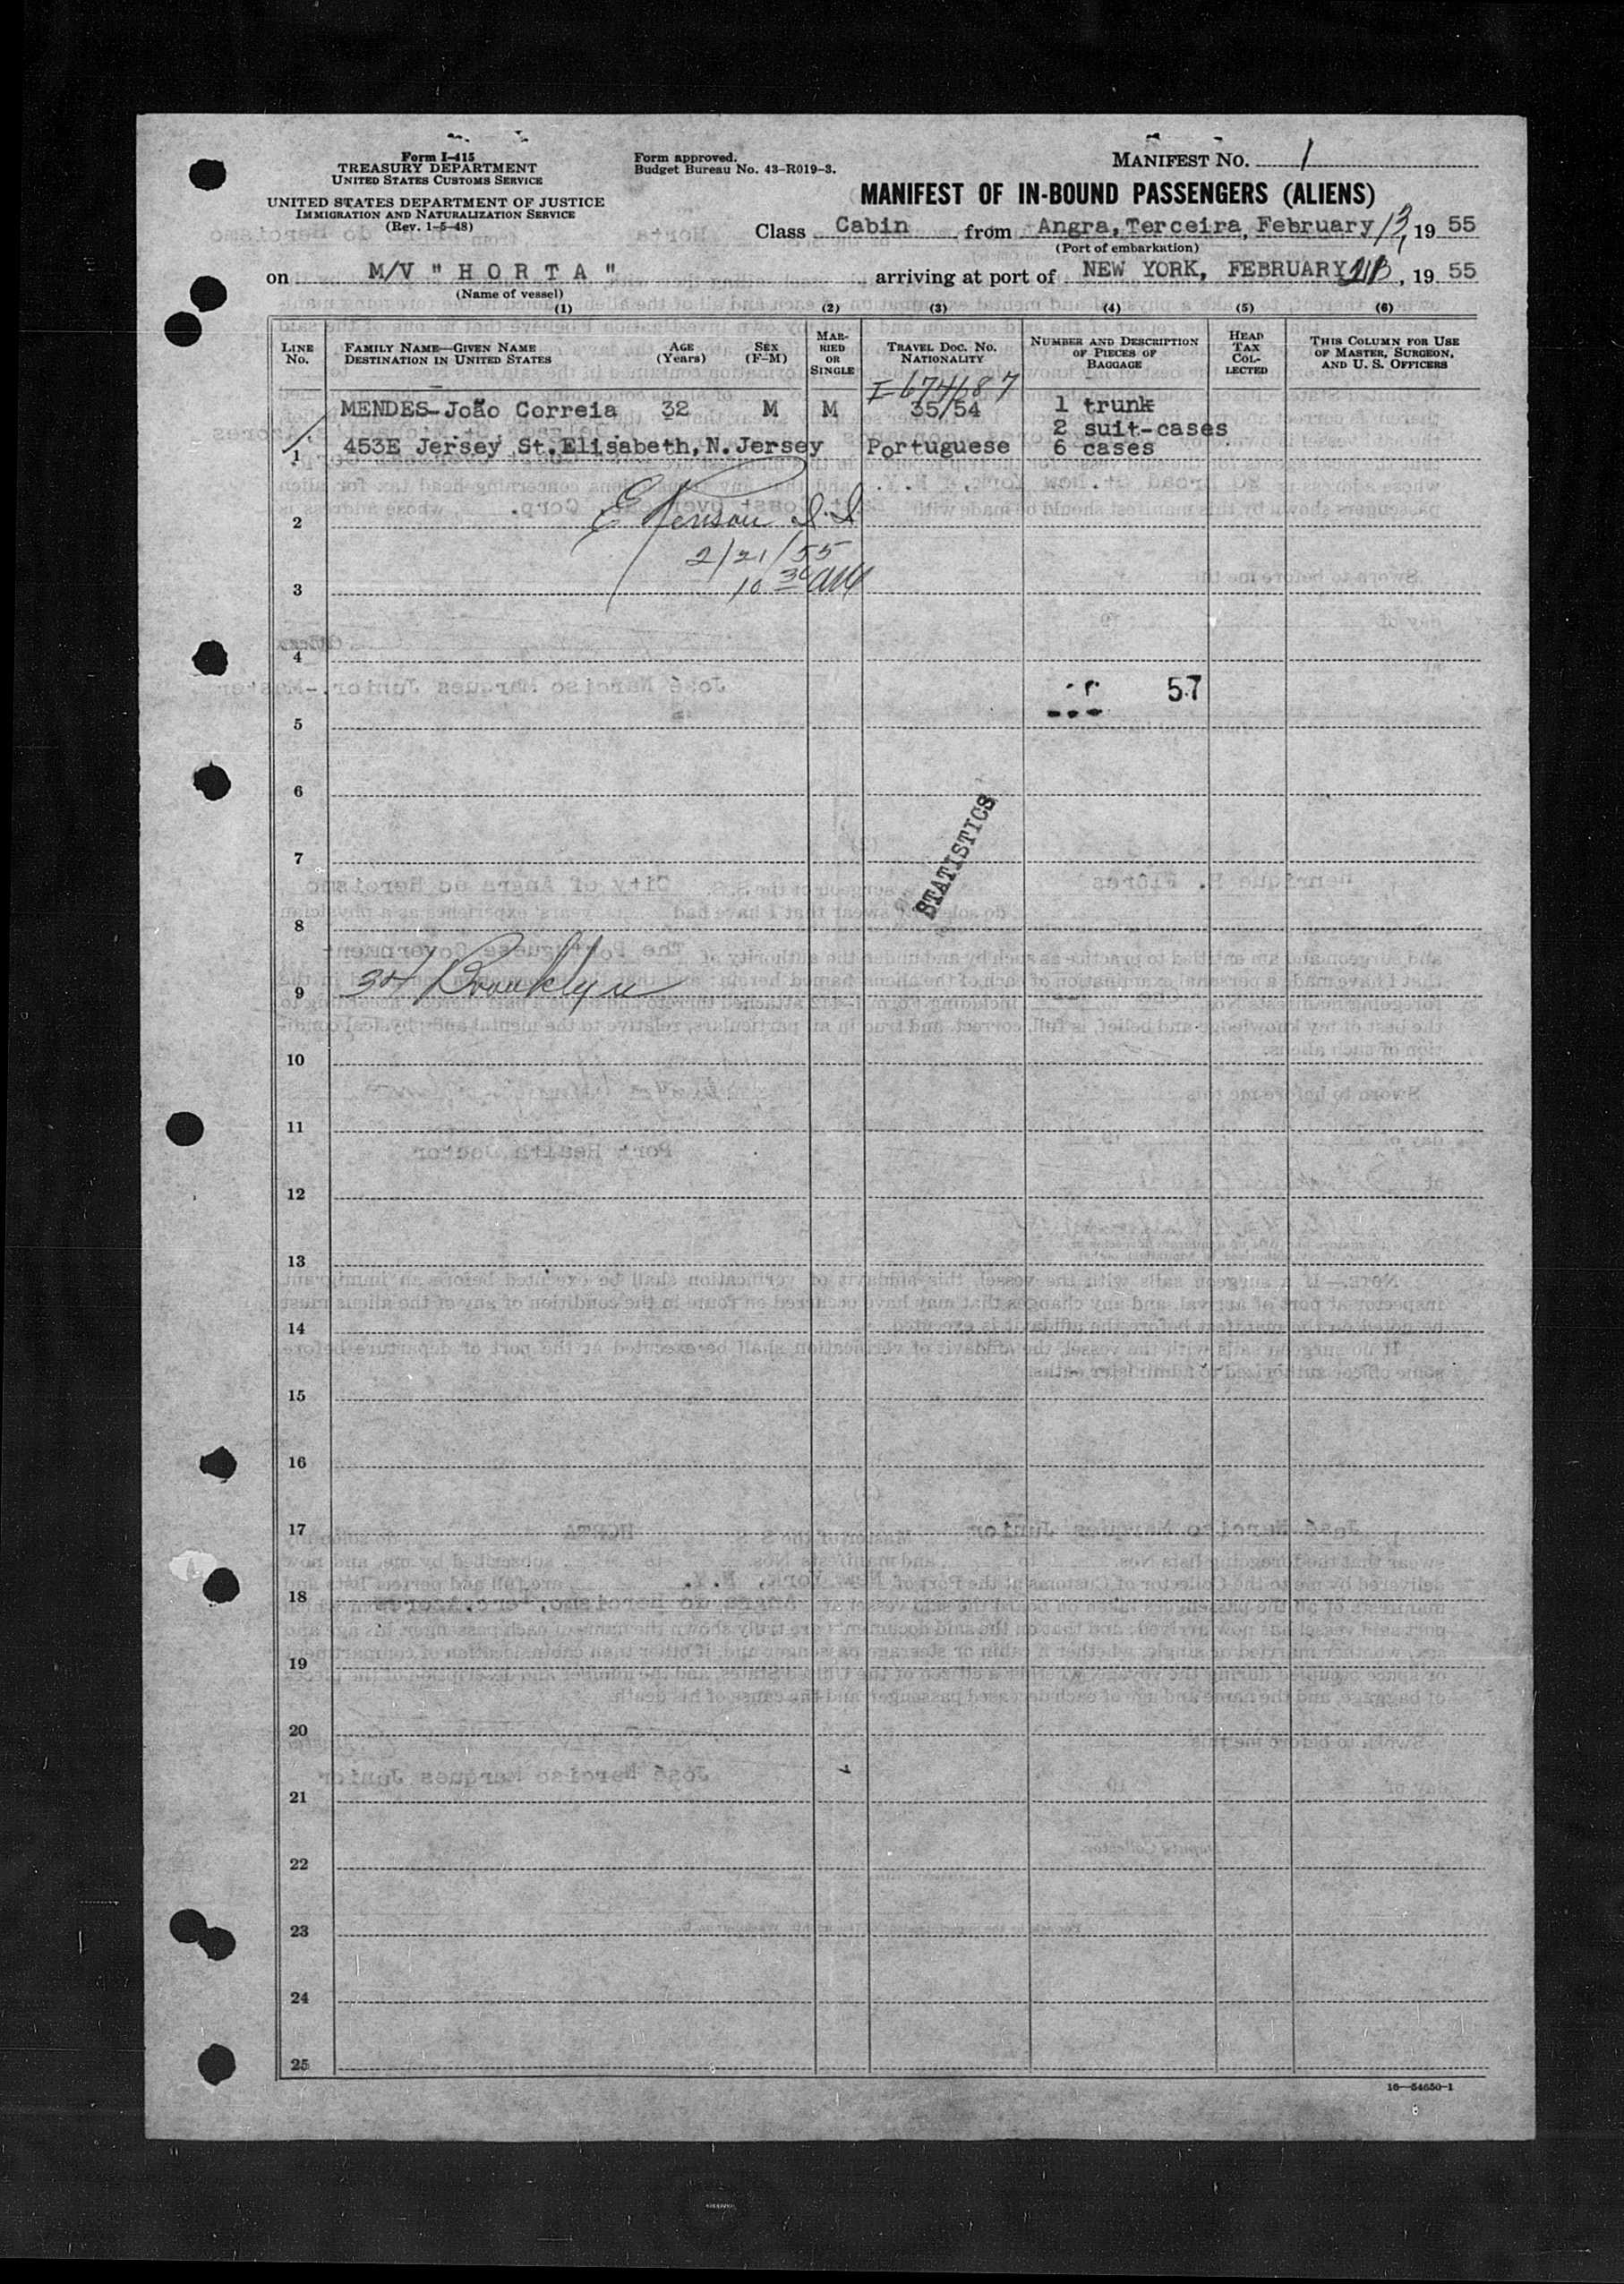 Form I-415
TREASURY DEPARTMENT
UNITED STATES CUSTOMS SERVICE
UNITED STATES DEPARTMENT OF JUSTICE
IMMIGRATION AND NATURALIZATION SERVICE
(Rev. 1-5-48)
Form approved.
Budget Bureau No. 43-R019-3.
MANIFEST NO. 1
MANIFEST OF IN-BOUND PASSENGERS (ALIENS)
Class Cabin from Angra, Terceira, February 13, 19 55
(Port of embarkation)
on M/V "HORTA" arriving at port of NEW YORK, FEBRUARY 21, 19 55
(Name of vessel)
(1) (2) (3) (4) (5) (6)
LINE No.
FAMILY NAME—GIVEN NAME
DESTINATION IN UNITED STATES
AGE (Years)
SEX (F-M)
MARRIED OR SINGLE
TRAVEL DOC. NO.
NATIONALITY
NUMBER AND DESCRIPTION OF PIECES OF BAGGAGE
HEAD TAX COLLECTED
THIS COLUMN FOR USE OF MASTER, SURGEON, AND U. S. OFFICERS
I-674687
MENDES-João Correia 32 M M 35/54 1 trunk
2 suit-cases
1 453E Jersey St.Elisabeth,N.Jersey Portuguese 6 cases
2
2/21/55
10 30 AM
3
4
57
5
6
STATISTICS
7
8
9 Brooklyn
10
11
12
13
14
15
16
17
18
19
20
21
22
23
24
25
16—54650-1